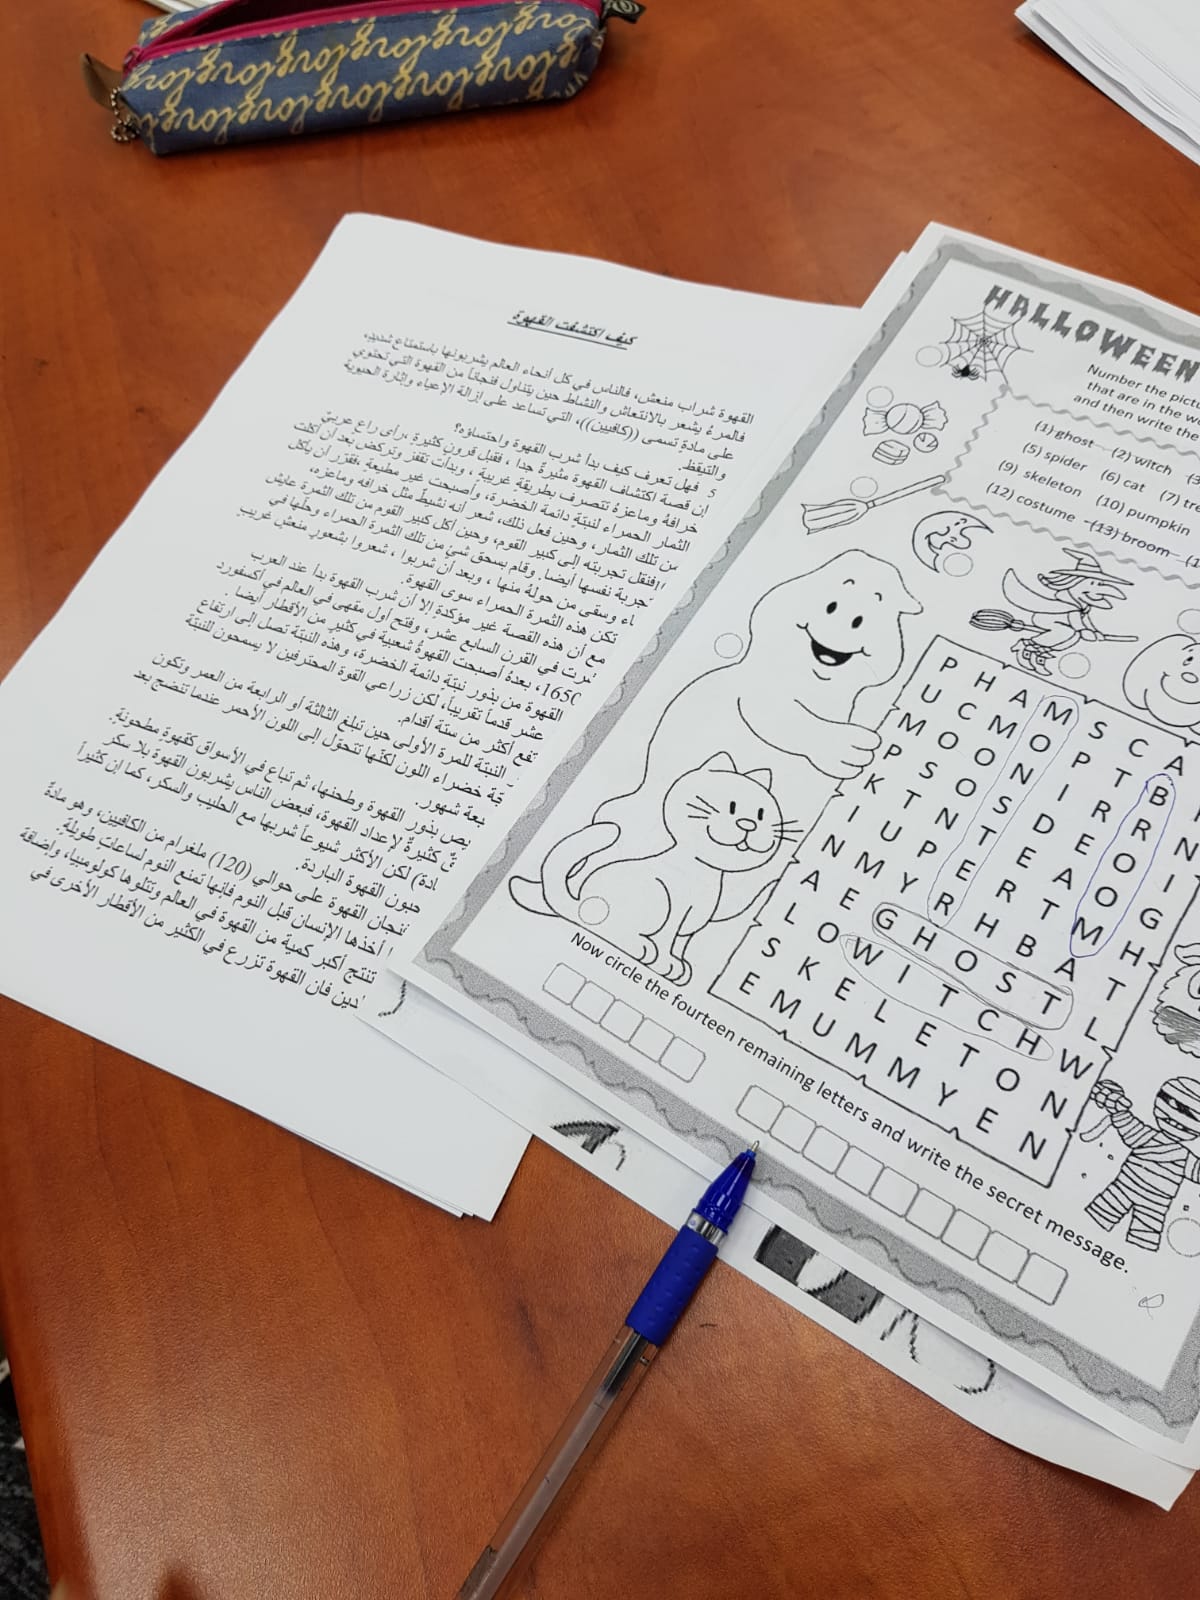 كيف اكتشفت القهوة
القهوة شراب منعش، فالناس في كل أنحاء العالم يشربونها باستمتاع شديد،
فالمرءُ يشعر بالانتعاش والنشاط حين يتناول فنجاناً من القهوة التي تحتوي
على مادةٍ تسمى ((كافيين))، التي تساعد على إزالة الإعياء وإثارة الحيوية
والتيقظ.
فهل تعرف كيف بدأ شرب القهوة واحتساؤه؟
إن قصة اكتشاف القهوة مثيرةٌ جدا ، فقبل قرونٍ كثيرةٍ ،رأى راعٍ عربيٌ
خرافهُ وماعزهُ تتصرف بطريقة غريبة ، وبدأت تقفز وتركض بعد أن أكلت
الثمار الحمراء لنبتةٍ دائمة الخضرة، وأصبحت غير مطيعة ،فقرّر أن يأكل
من تلك الثمار، وحين فعل ذلك، شعر أنه نشيطٌ مثل خرافه وماعزه،
فنقل تجربته إلى كبير القوم، وحين أكل كبير القوم من تلك الثمرة عايش
تجربة نفسها أيضا. وقام بسحق شئٍ من تلك الثمرة الحمراء وحلّها في
اء وسقى من حولهُ منها ، وبعد أن شربوا ، شعروا بشعورٍ منعشٍ غريبٍ
تكن هذه الثمرة الحمراء سوى القهوة.
مع أن هذه القصة غير مؤكدةٍ إلا أن شرب القهوة بدأ عند العرب
في القرن السابع عشر، وفتح أول مقهى في العالم في أكسفورد
1650، بعدهُ أصبحت القهوة شعبية في كثيرٍ من الأقطار أيضا .
القهوة من بذور نبتةٍ دائمة الخضرة، وهذه النبتة تصل إلى ارتفاع
عشر قدماً تقريباً، لكن زراعي القوة المحترفين لا يسمحون للنبتة
تفع أكثر من ستة أقدام.
النبتة للمرة الأولى حين تبلغ الثالثة أو الرابعة من العمر وتكون
خضراء اللون لكنّها تتحوّل إلى اللون الأحمر عندما تنضج بعد
بعة شهور.
يص بذور القهوة وطحنها، ثم تباع في الأسواق كقهوةٍ مطحونةٍ.
كثيرةٌ لإعداد القهوة، فبعض الناس يشربون القهوة بلا سكر
ادة) لكن الأكثر شيوعاً شربها مع الحليب والسكر، كما إن كثيراً
حبون القهوة الباردة.
فنجان القهوة على حوالي (120) ملغرام من الكافيين، وهو مادةٌ
أخذها الإنسان قبل النوم فإنها تمنع النوم لساعات طويلة.
تنتج أكبر كمية من القهوة في العالم وتتلوها كولومبيا، وإضافة
دين فان القهوة تزرع في الكثير من الأقطار الأخرى في
HALLOWEEN
Number the pictu
that are in the wo
and then write the
(1) ghost (2) witch (3
(5) spider (6) cat (7) tre
(9) skeleton (10) pumpkin
(12) costume (13) broom (1
P H A M S C A
U C M O P T B
M O O N I R R N
P S O S D E O I
K T N T E A O G
I U P E R T M H
N M Y R H B A T
A E G H O S T L
L O W I T C H W
S K E L E T O N
E M U M M Y E N
Now circle the fourteen remaining letters and write the secret message.